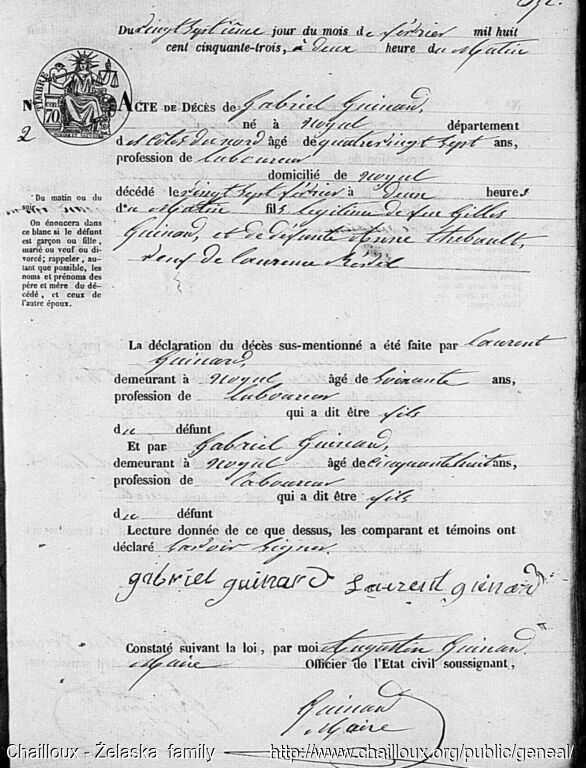 Du vingt Sept ième jour du mois de février mil huit
cent cinquante-trois, à deux heure du Matin
TIMBRE
70
N
2
ACTE DE DÉCÈS DE Gabriel Guinard,
né à noyal département
des côtes du nord âgé de quatre vingt Sept ans,
profession de laboureur
domicilié de noyal
décédé le vingt Sept février à deux heures
du Matin fils légitime de feu Gilles
Guinard, et de défunte Anne thebault,
veuf de laurence
Du matin ou du
soir.
On énoncera dans
ce blanc si le défunt
est garçon ou fille,
marié ou veuf ou di-
vorcé; rappeler, au-
tant que possible, les
noms et prénoms des
père et mère du dé-
cédé, et ceux de
l'autre époux.
La déclaration du décès sus-mentionné a été faite par laurent
Guinard,
demeurant à noyal âgé de soixante ans,
profession de laboureur
qui a dit être fils
du défunt
Et par Gabriel Guinard,
demeurant à noyal âgé de cinquante huit ans,
profession de laboureur
qui a dit être fils
du défunt
Lecture donnée de ce que dessus, les comparant et témoins ont
déclaré savoir signer.
gabriel guinard Laurent guinard
Constaté suivant la loi, par moi Augustin Guinard
Maire Officier de l'Etat civil soussignant,
Guinard
Maire
Chailloux - Żelaska family http://www.chailloux.org/public/geneal/